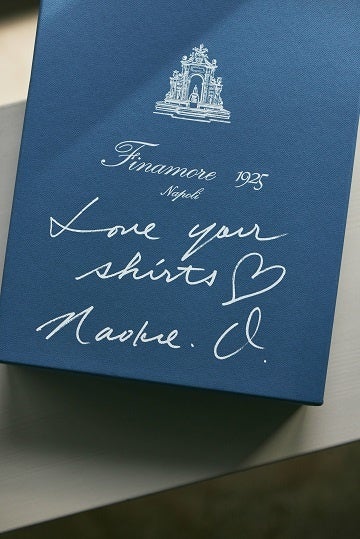 Finamore 1925
Napoli
Love your
shirts♡
Naokie. O.